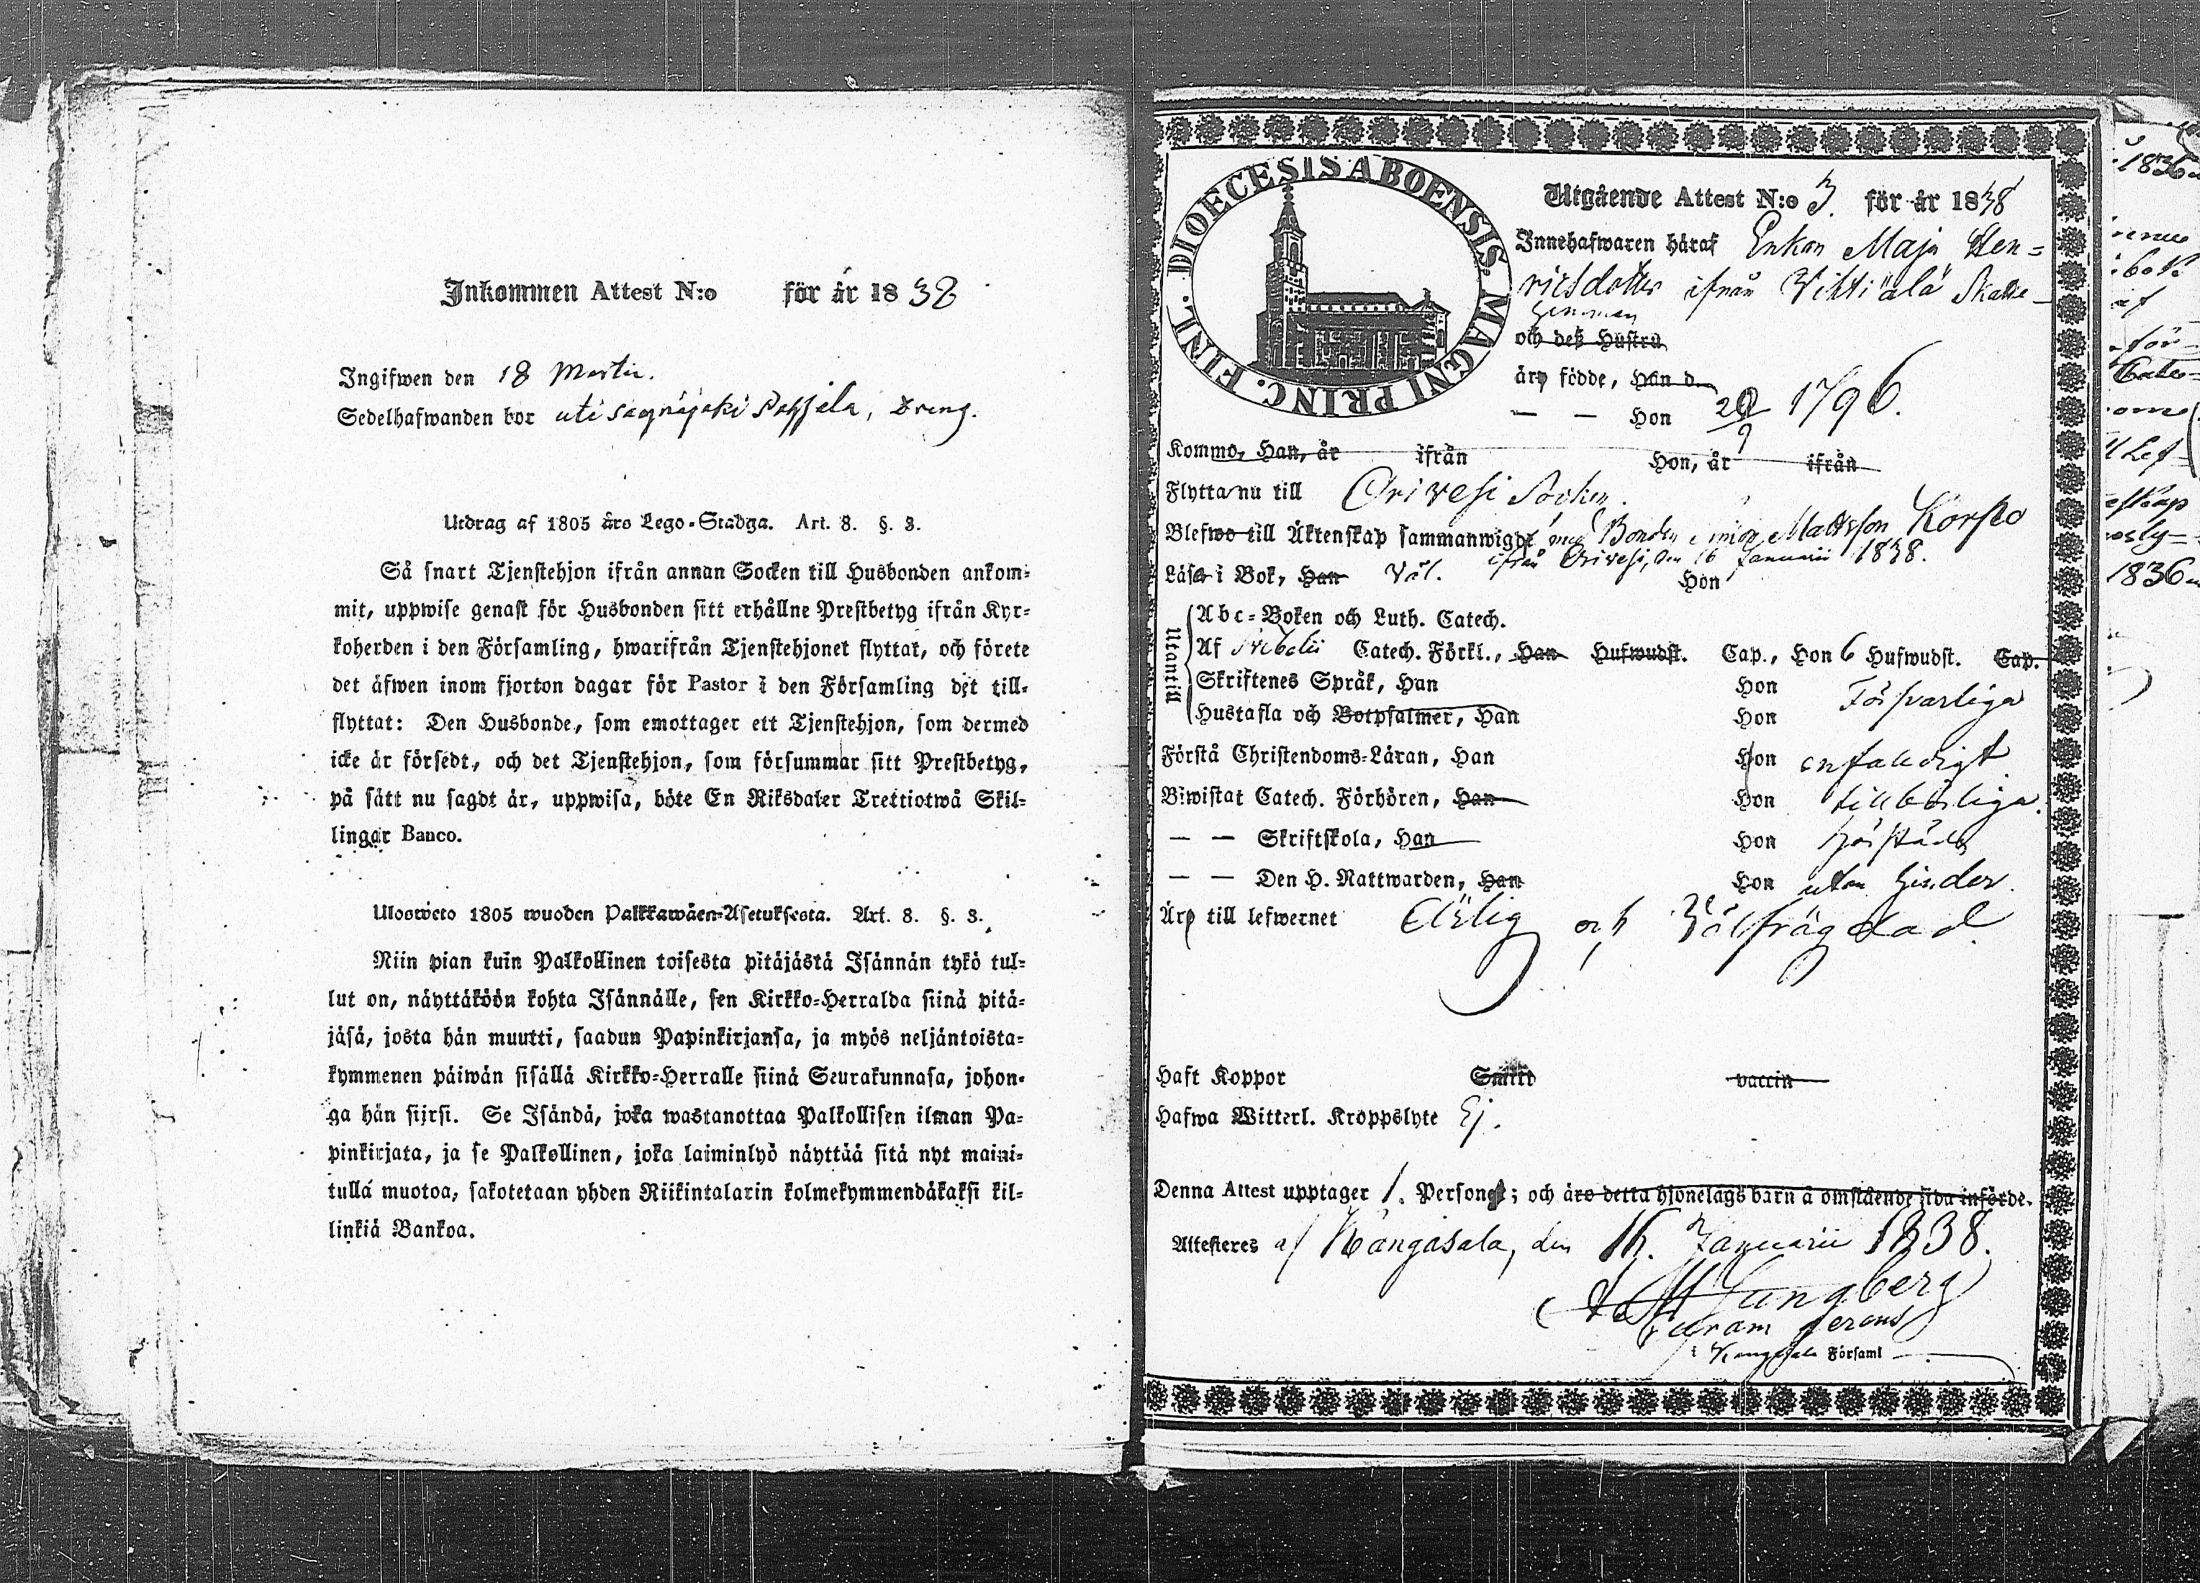 Inkommen Attest N:o för år 1838
Ingifwen den 18 Martii.
Sedelhafwanden bor uti Sägnäjoki Pohjola, Dreng.
Utdrag af 1805 års Lego-Stadga. Art. 8. §. 3.
Så snart Tjenstehjon ifrån annan Socken till Husbonden ankom-
mit, uppwise genast för Husbonden sitt erhållne Prestbetyg ifrån Kyr-
koherden i den Församling, hwarifrån Tjenstehjonet flyttat, och förete
det äfwen inom fjorton dagar för Pastor i den Församling det till-
flyttat: Den Husbonde, som emottager ett Tjenstehjon, som dermed
icke är försedt, och det Tjenstehjon, som försummar sitt Prestbetyg,
på sätt nu sagdt är, uppwisa, böte En Riksdaler Trettiotwå Skil-
lingar Banco.
Ulosweto 1805 wuoden Palkkawäen-Asetuksesta. Art. 8. §. 3.
Niin pian kuin Palkollinen toisesta pitäjästä Isännän tykö tul-
lut on, näyttäköön kohta Isännälle, sen Kirkko-Herralda siinä pitä-
jäsä, josta hän muutti, saadun Papinkirjansa, ja myös neljäntoista-
kymmenen päiwän sisällä Kirkko-Herralle siinä Seurakunnasa, johon-
ga hän siirsi. Se Isändä, joka wastanottaa Palkollisen ilman Pa-
pinkirjata, ja se Palkollinen, joka laiminlyö näyttää sitä nyt maini-
tulla muotoa, sakotetaan yhden Riikintalarin kolmekymmendäkaksi kil-
linkiä Bankoa.
DIOECESIS ABOENSIS. MAGNI PRINC. FINL.
Utgående Attest N:o 3. för år 1838
Innehafwaren häraf Enkan Maja Hen=
ricsdotter ifrån Vihtiälä Skatte-
hemman
och deß Hustru
äro födde, Han d.
— — Hon 20/9 1796.
Kommo, Han, år ifrån Hon, år ifrån
Flytta nu till Orivesi Socken.
Blefwo till Äktenskap sammanwigde med Bonden Simon Mattsson Korpo
ifrån Orivesi, den 16 Januarii 1838.
Läsa i Bok, Han Väl. Hon
Utantill
Abc-Boken och Luth. Catech.
Af Svebelii Catech. Förkl., Han Hufwudst. Cap., Hon 6 Hufwudst. Cap.
Skriftenes Språk, Han Hon Försvarliga
Hustafla och Botpsalmer, Han Hon
Förstå Christendoms-Läran, Han Hon enfaldigt
Biwistat Catech. Förhören, Han Hon tillbörliga.
— — Skriftskola, Han Hon
— — Den H. Nattwarden, Han Hon utan hinder.
Äro till lefwernet Ärlig och Välfrägdad.
Haft Koppor Smitt vaccin
Hafwa Witterl. Kroppslyte Ej.
Denna Attest upptager 1. Person; och äro detta hjonelags barn å omstående sida införde.
Attesteres af Kangasala, den 16. Januarii 1838.
Ljungberg
curam gerens
i Kangasala Församl
1836
1836